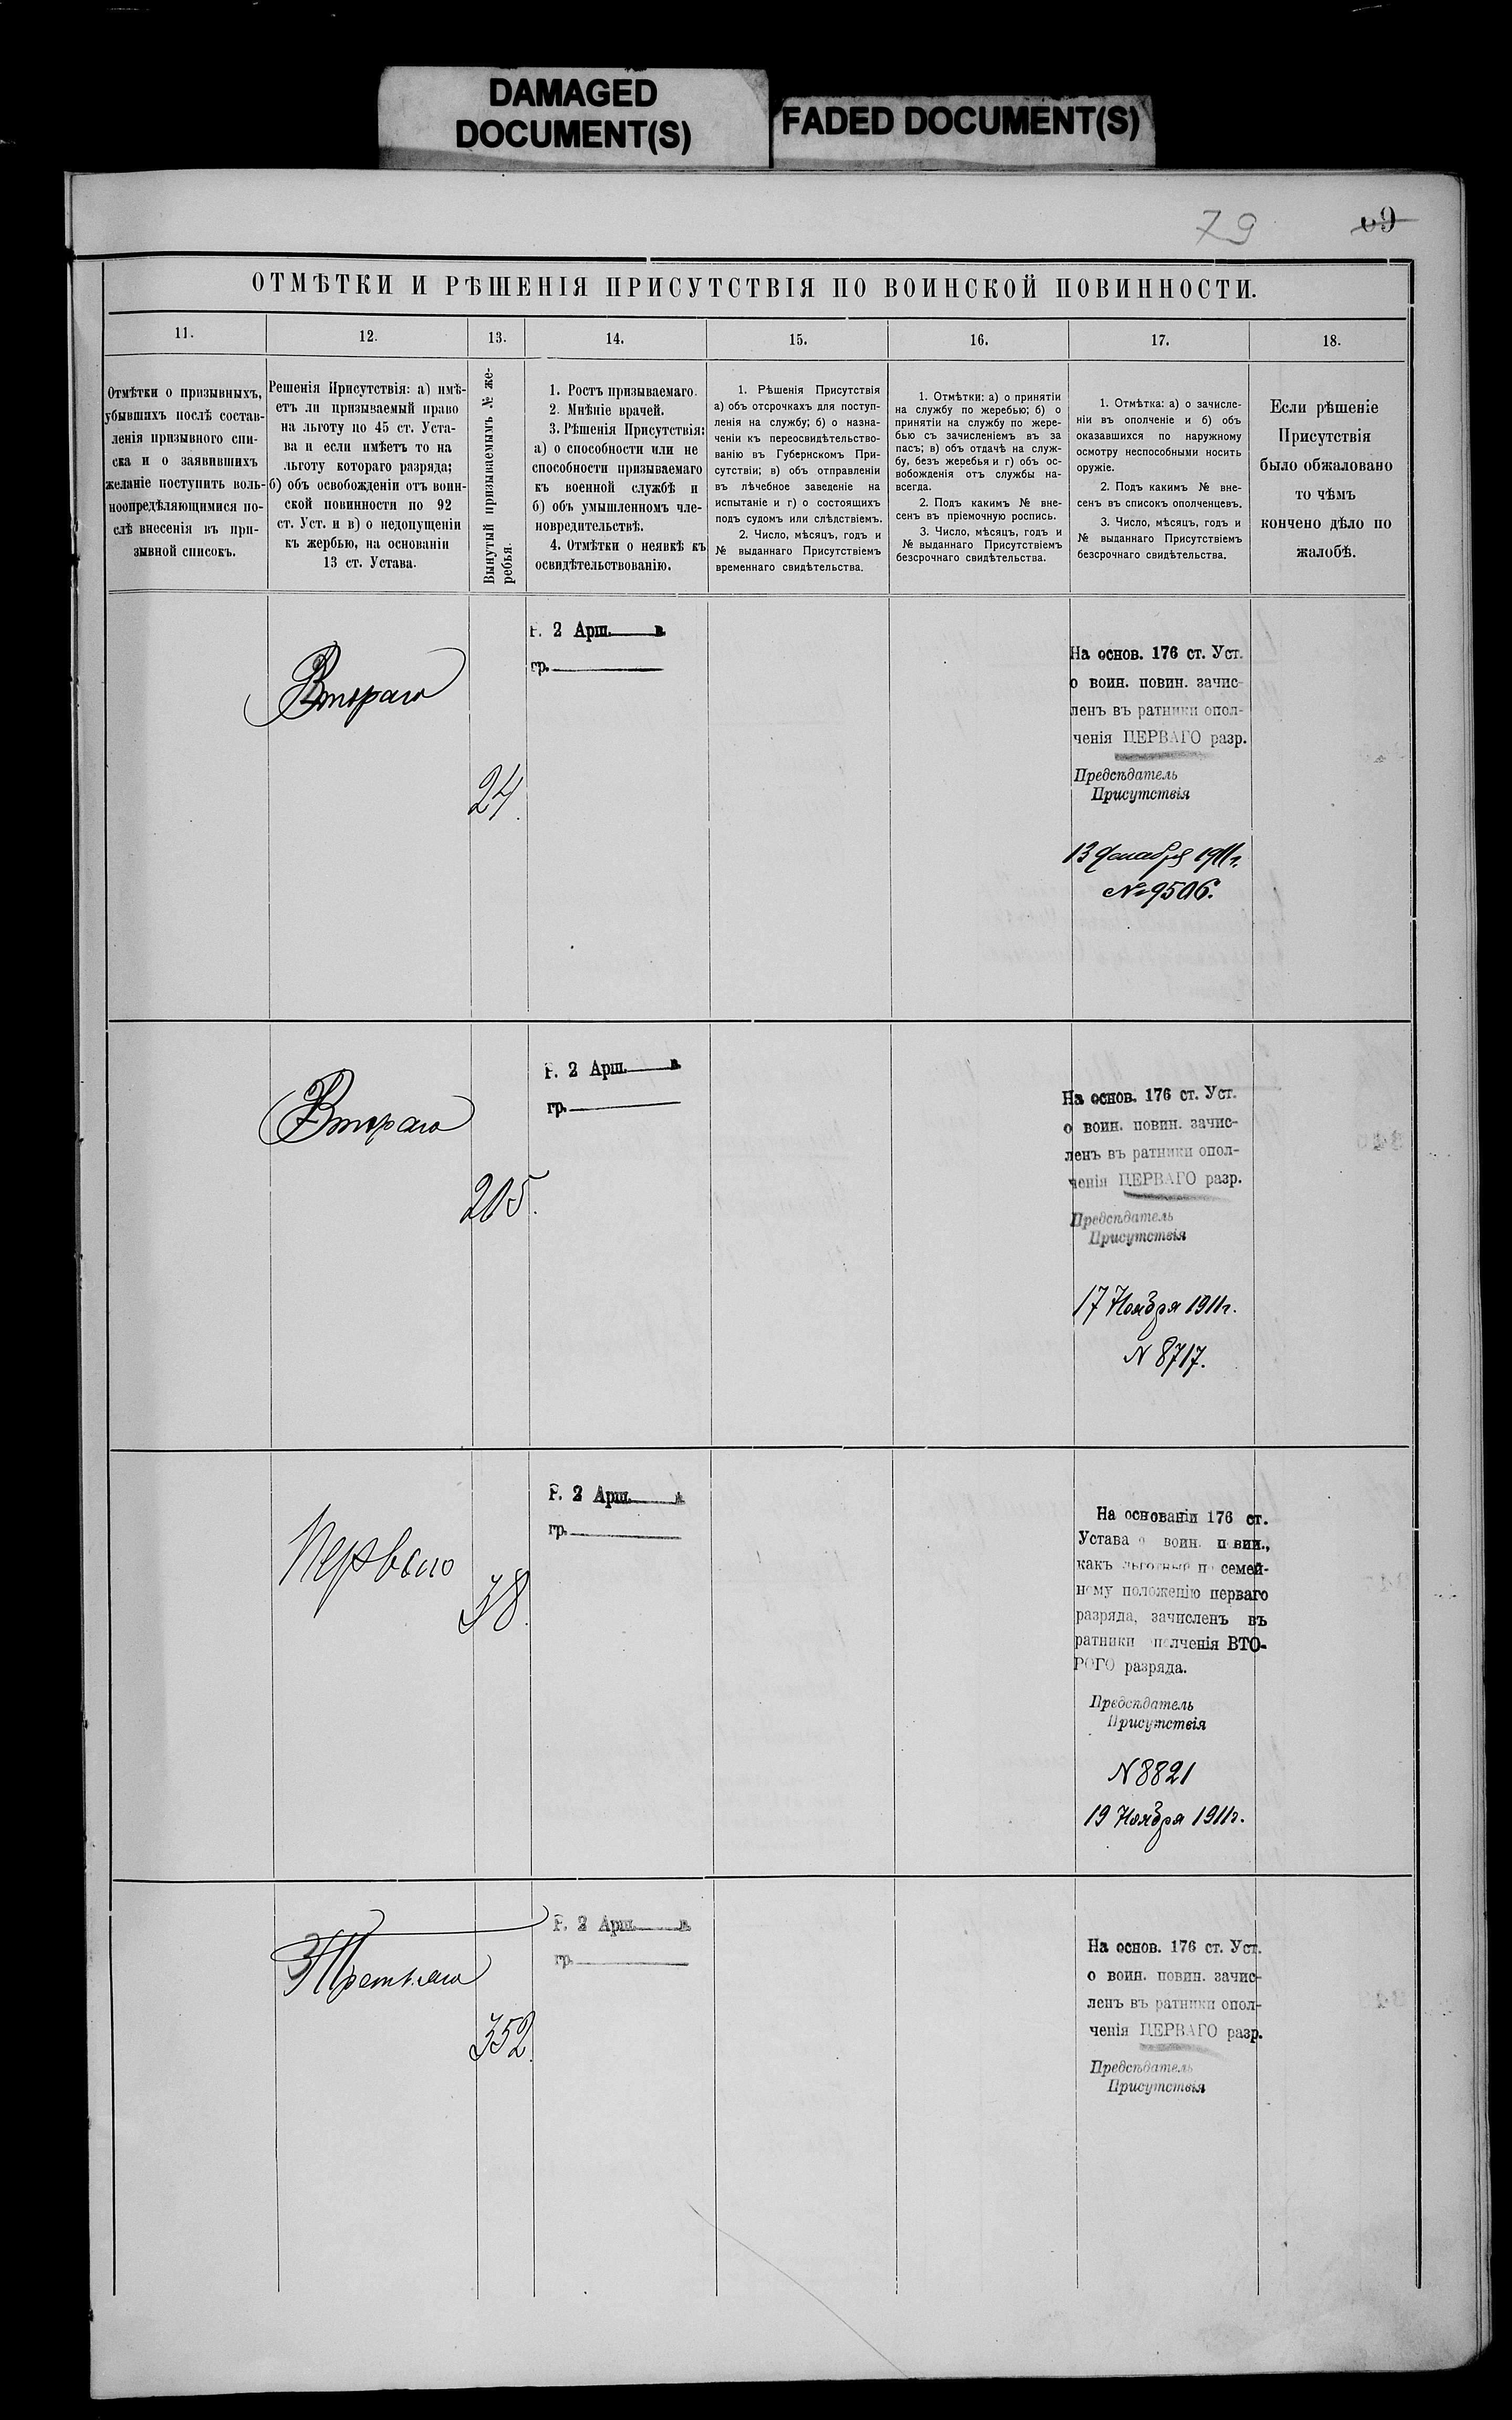 DAMAGED
DOCUMENT(S)
FADED DOCUMENT(S)
79
69
ОТМѢТКИ И РѢШЕНІЯ ПРИСУТСТВІЯ ПО ВОИНСКОЙ ПОВИННОСТИ.
11.
12.
13.
14.
15.
16.
17.
18.
Отмѣтки о призывныхъ,
убывшихъ послѣ состав-
ленія призывного спи-
ска и о заявившихъ
желаніе поступить воль-
ноопредѣляющимися по-
слѣ внесенія въ при-
зывной списокъ.
Решенія Присутствія: а) имѣ-
етъ ли призываемый право
на льготу по 45 ст. Уста-
ва и если имѣетъ то на
льготу котораго разряда;
б) объ освобожденіи отъ воин-
ской повинности по 92
ст. Уст. и в) о недопущеніи
къ жербью, на основаніи
13 ст. Устава.
Вынутый призываемымъ № же-
ребья.
1. Ростъ призываемаго.
2. Мнѣніе врачей.
3. Рѣшенія Присутствія:
а) о способности или не
способности призываемаго
къ военной службѣ и
б) объ умышленномъ чле-
новредительствѣ.
4. Отмѣтки о неявкѣ къ
освидѣтельствованію.
1. Рѣшенія Присутствія
а) объ отсрочкахъ для поступ-
ленія на службу; б) о назна-
ченіи къ переосвидѣтельство-
ванію въ Губернскомъ При-
сутствіи; в) объ отправленіи
въ лѣчебное заведеніе на
испытаніе и г) о состоящихъ
подъ судомъ или слѣдствіемъ.
2. Число, мѣсяцъ, годъ и
№ выданнаго Присутствіемъ
временнаго свидѣтельства.
1. Отмѣтки: а) о принятіи
на службу по жеребью; б) о
принятіи на службу по жере-
бью съ зачисленіемъ въ за
пасъ; в) объ отдачѣ на служ-
бу, безъ жеребья и г) объ ос-
вобожденія отъ службы на-
всегда.
2. Подъ какимъ № вне-
сенъ въ пріемочную роспись.
3. Число, мѣсяцъ, годъ и
№ выданнаго Присутствіемъ
безсрочнаго свидѣтельства.
1. Отмѣтка: а) о зачисле-
ніи въ ополченіе и б) объ
оказавшихся по наружному
осмотру неспособными носить
оружіе.
2. Подъ какимъ № вне-
сенъ въ списокъ ополченцевъ.
3. Число, мѣсяцъ, годъ и
№ выданнаго Присутствіемъ
безсрочнаго свидѣтельства.
Если рѣшеніе
Присутствія
было обжаловано
то чѣмъ
кончено дѣло по
жалобѣ.
Втораго
24.
Р. 2 Арш. в.
гр.
На основ. 176 ст. Уст.
о воин. повин. зачис-
ленъ въ ратники опол-
ченія ПЕРВАГО разр.
Предсѣдатель
Присутствія
13 Декабря 1911 г.
№ 9506.
Втораго
205.
Р. 2 Арш. в.
гр.
На основ. 176 ст. Уст.
о воин. повин. зачис-
ленъ въ ратники опол-
ченія ПЕРВАГО разр.
Предсѣдатель
Присутствія
17 Ноября 1911 г.
N 8717.
Перваго
38.
Р. 2 Арш. в
гр.
На основаніи 176 ст.
Устава о воин. повин.,
какъ льготный по семей-
ному положенію перваго
разряда, зачисленъ въ
ратники ополченія ВТО-
РОГО разряда.
Предсѣдатель
Присутствія
N 8821
19 Ноября 1911 г.
3
Третьяго
352.
Р. 2 Арш. в.
гр.
На основ. 176 ст. Уст.
о воин. повин. зачис-
ленъ въ ратники опол-
ченія ПЕРВАГО разр.
Предсѣдатель
Присутствія